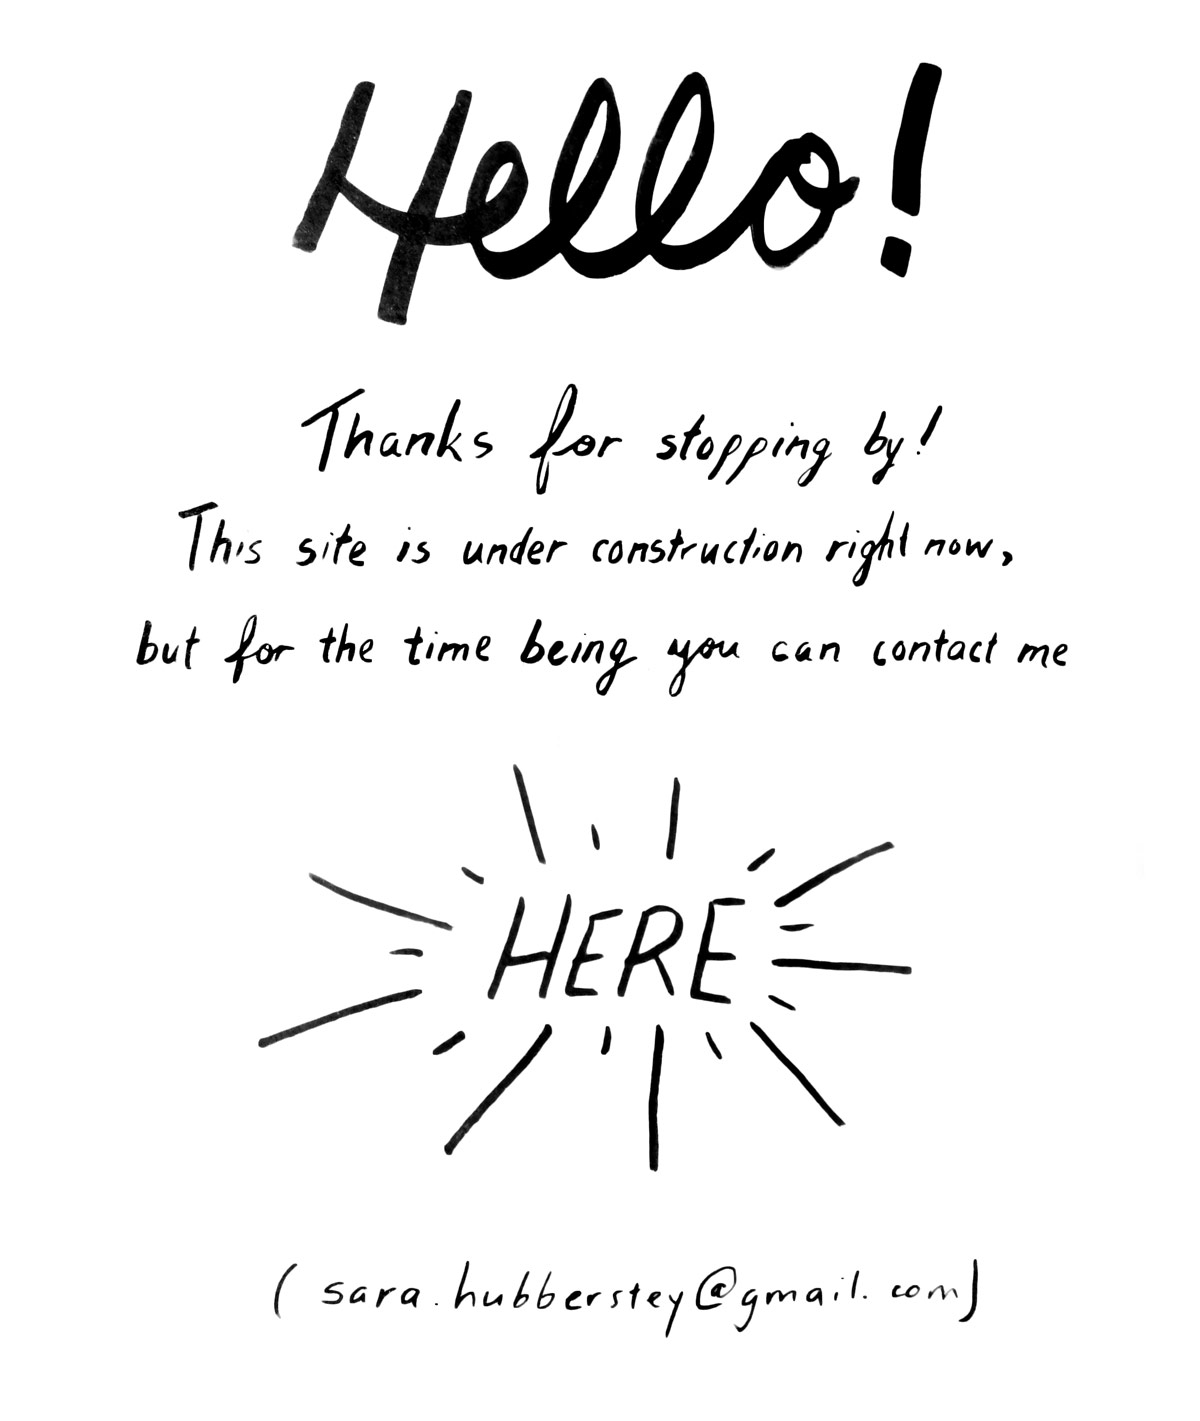 Hello!
Thanks for stopping by!
This site is under construction right now,
but for the time being you can contact me
HERE
( sara.hubberstey@gmail.com)